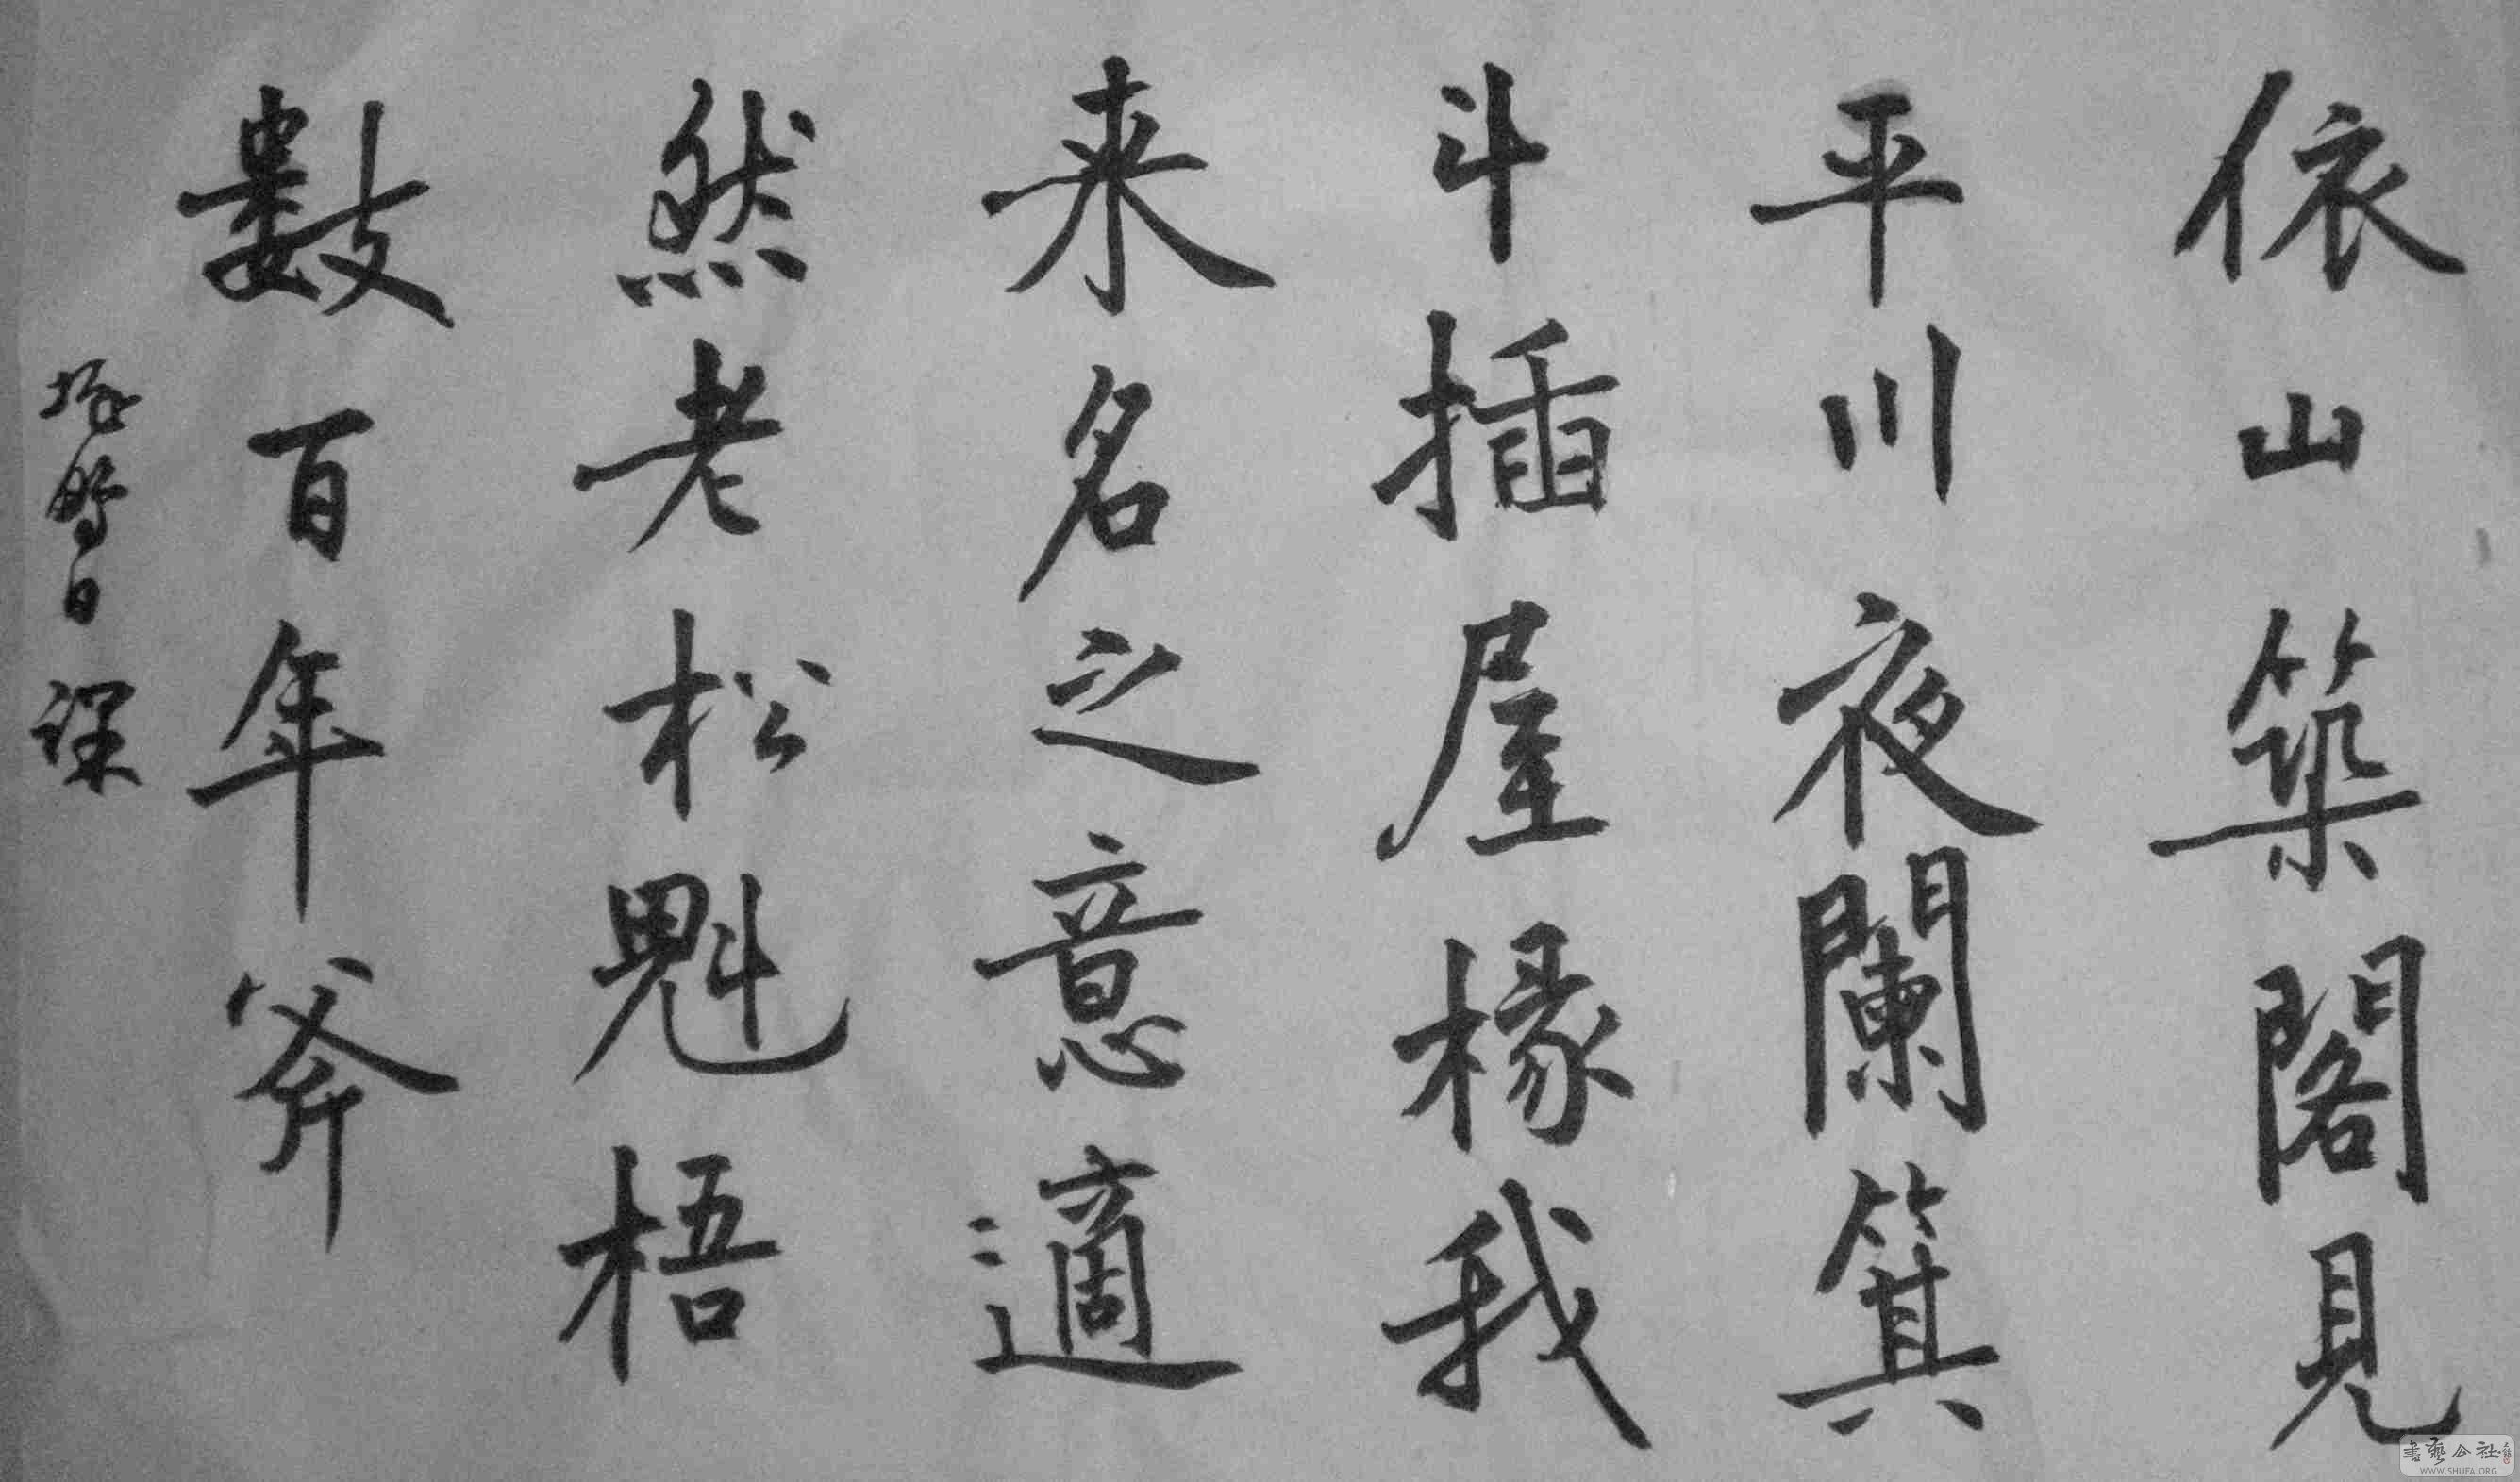 依山築閣見
平川夜闌箕
斗插屋椽我
来名之意適
然老松魁梧
數百年斧
日課
書藝公社
WWW.SHUFA.ORG